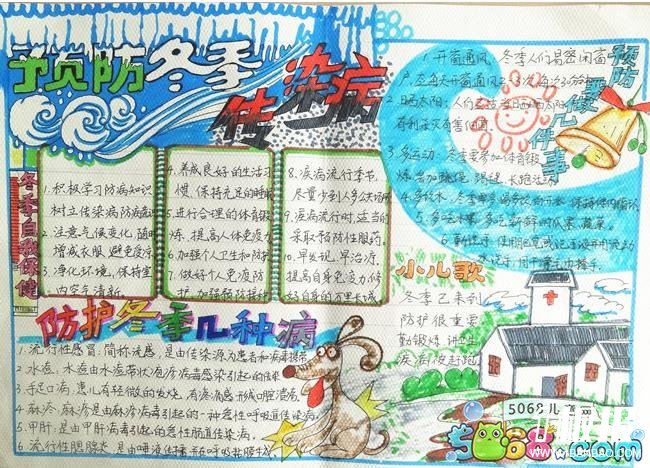 预防冬季
传染病
预防
需要做
几件事
1.开窗通风:冬季人们易密闭窗
户,应每天开窗通风2-3次,每次30分钟
2.晒太阳:人们应该每日晒太阳
有利杀灭有害细菌。
3.多运动:冬季要参加体育锻
炼,如跳绳、踢毽、长跑运动
4.多饮水:
5.多吃水果:多吃新鲜的瓜果、蔬菜。
6.勤洗手:
冬季自我保健
1.积极学习防病知识
树立传染病防病意识
2.注意气候变化,随时
增减衣服,避免凉
3.净化环境,保持室
内空气清新
4.养成良好的生活习
惯,保持充足的睡眠
5.进行合理的体育锻
炼,提高人体免疫力
6.加强个人卫生和防护
7.做好个人免疫防
护,加强预防接种
8.疾病流行季节,
尽量少到人多公共场所
9.疾病流行时,适当的
采取预防性服药。
10.早发现,早治疗,
提高自身免疫力,修
好自身的万里长城
小儿歌
冬季已来到
防护很重要
勤锻炼 讲卫生
疾病被赶跑
防护冬季几种病
1.流行性感冒:简称流感,是由传染源为患者和病毒携带
2.水痘:水痘由水痘带状疱疹病毒感染引起的传染
3.手足口病:患儿有轻微的发烧,有疼痛感,形成口腔溃疡
4.麻疹:麻疹是由麻疹病毒引起的一种急性呼吸道传染病。
5.甲肝:是由甲肝病毒引起的急性肠道传染病。
6.流行性腮腺炎:是由唾液传播
5068儿
5068.com